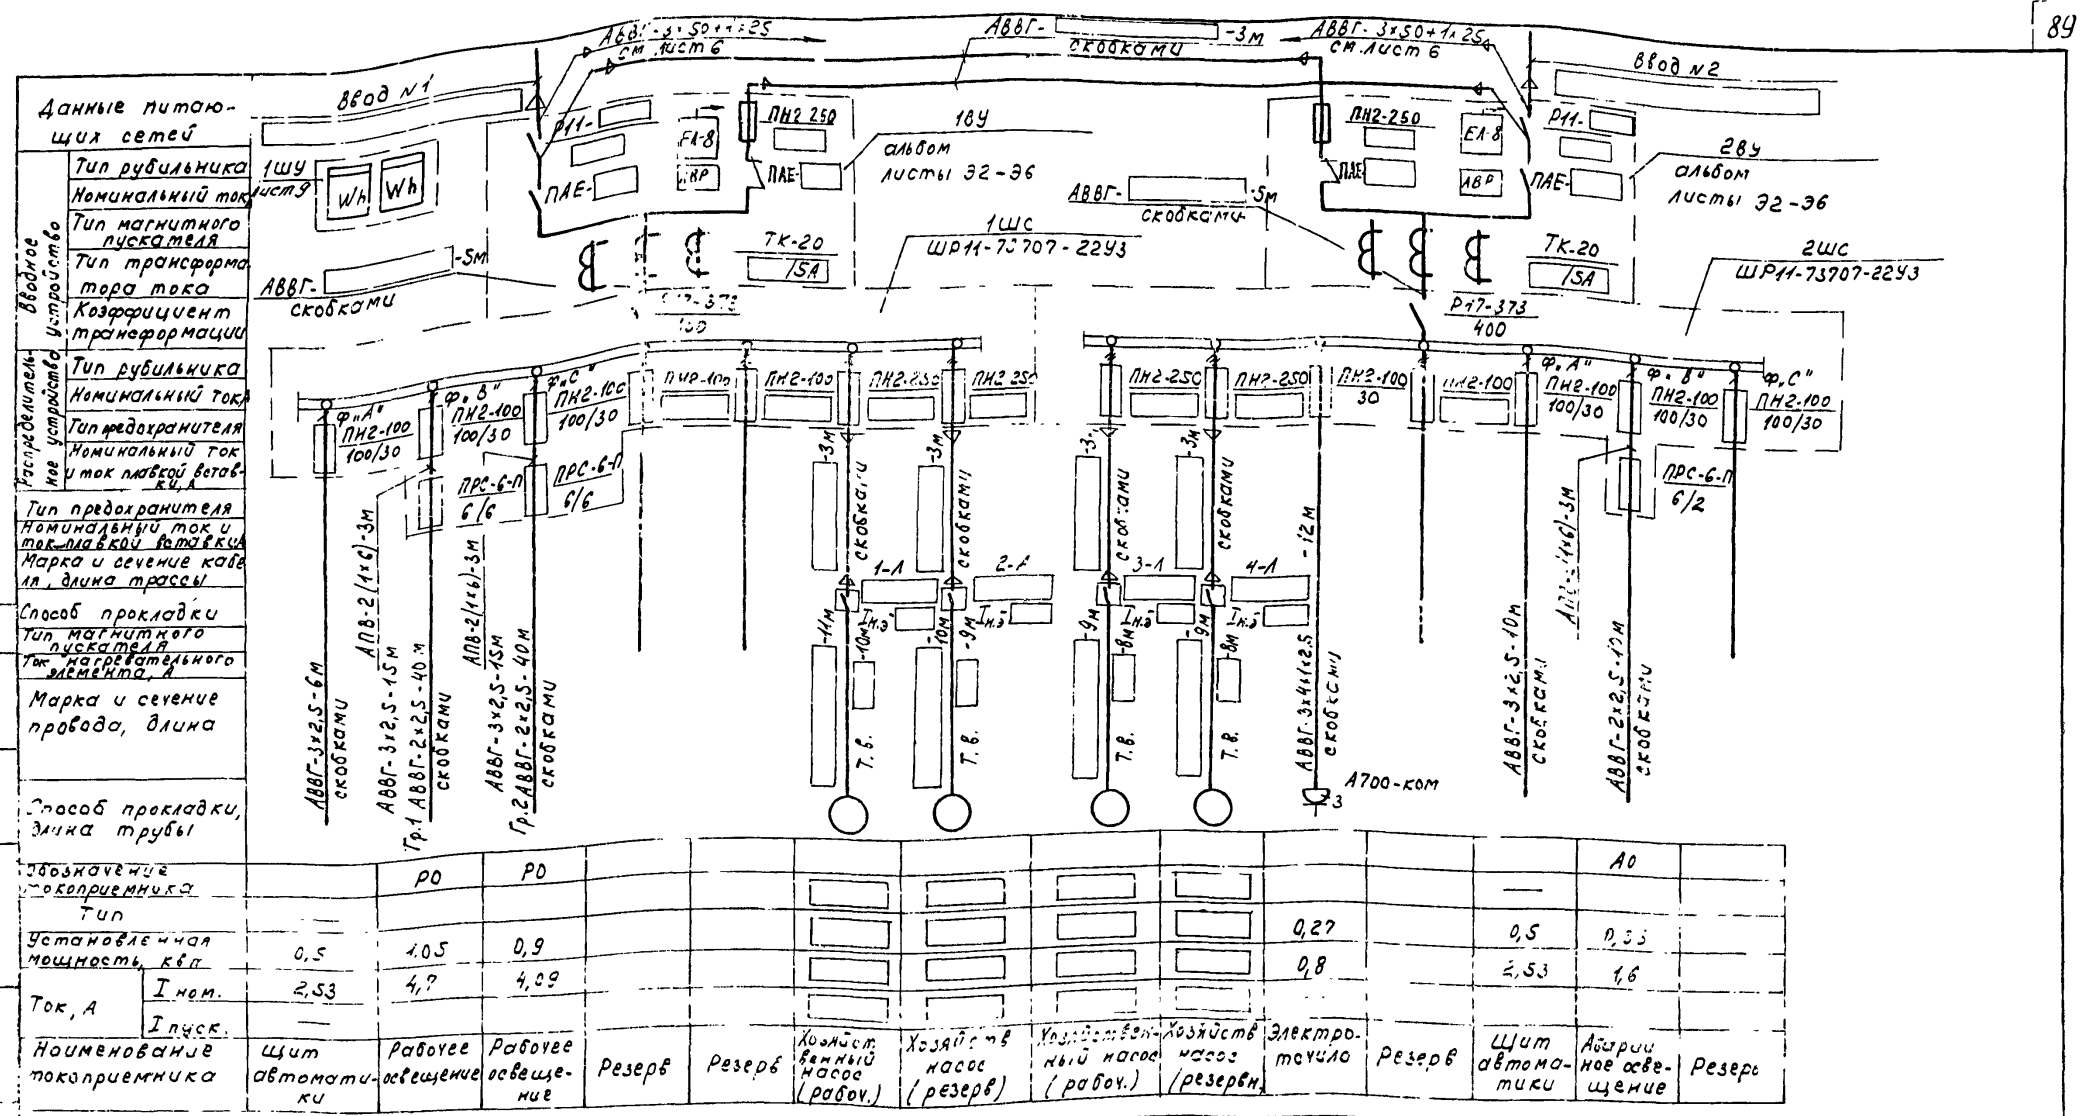 89
АВВГ-3×50+1×25
см. лист 6
АВВГ- -3м
скобками
АВВГ-3×50+1×25
см. лист 6
Ввод №1
Ввод №2
Данные питаю-
щих сетей
Вводное устройство
Тип рубильника
Номинальный ток
Тип магнитного
пускателя
Тип трансформа
тора тока
Коэффициент
трансформации
Распределитель-
ное устройство
Тип рубильника
Номинальный ток
Тип предохранителя
Номинальный ток
и ток плавкой встав-
ки, А
Тип предохранителя
Номинальный ток и
ток плавкой вставки
Марка и сечение кабе
ля, длина трассы
Способ прокладки
Тип магнитного
пускателя
Ток нагревательного
элемента, А
Марка и сечение
провода, длина
Способ прокладки,
длина трубы
1ШУ
лист 9
Wh
Wh
Р11-
ПАЕ-
ЕЛ-8
АВР
ПН2 250
ПАЕ-
1ВУ
альбом
листы Э2-Э6
ПН2-250
ПАЕ-
ЕЛ-8
АВР
Р11-
ПАЕ-
2ВУ
альбом
листы Э2-Э6
АВВГ- -5м
скобками
АВВГ- -5м
скобками
ТК-20
/5А
ТК-20
/5А
1ШС
ШР11-73707-22У3
2ШС
ШР11-73707-22У3
Р17-373
Р17-373
400
ф.„А"
ПН2-100
100/30
ф.„В"
ПН2-100
100/30
ф.„С"
ПН2-100
100/30
ПН2-100
ПН2-100
ПН2-250
ПН2-250
ПН2-250
ПН2-250
ПН2-100
30
ПН2-100
ф.„А"
ПН2-100
100/30
ф.„В"
ПН2-100
100/30
ф.„С"
ПН2-100
100/30
ПРС-6-П
6/6
ПРС-6-П
6/6
ПРС-6-П
6/2
АВВГ-3×2,5-6м
скобками
АПВ-2(1×6)-3м
АВВГ-3×2,5-15м
Гр.1 АВВГ-2×2,5-40м
скобками
АПВ-2(1×6)-3м
АВВГ-3×2,5-15м
Гр.2 АВВГ-2×2,5-40м
скобками
-3м
скобками
1-Л
Iн.э
-11м
-10м
Т.В.
-3м
скобками
2-Л
Iн.э
-10м
-9м
Т.В.
скобками
3-Л
Iн.э
-9м
-8м
Т.В.
-3м
скобками
4-Л
Iн.э
-9м
-8м
Т.В.
-12м
АВВГ-3×4+1×2,5
скобками
3
А700-ком
АВВГ-3×2,5-10м
скобками
АВВГ-2×2,5-10м
скобками
Обозначение
токоприемника
РО
РО
АО
Тип
—
—
Установленная
мощность, квт
0,5
1.05
0,9
0,27
0,5
Ток, А
I ном.
2,53
4,7
4,09
0,8
2,53
1,6
I пуск.
—
Наименование
токоприемника
Щит
автомати-
ки
Рабочее
освещение
Рабочее
освеще-
ние
Резерв
Резерв
Хозяйст
венный
насос
(рабоч.)
Хозяйств
насос
(резерв)
Хозяйствен-
ный насос
(рабоч.)
Хозяйств
насос
(резервн.
Электро-
точило
Резерв
Щит
автома-
тики
Аварии
ное осве-
щение
Резерв